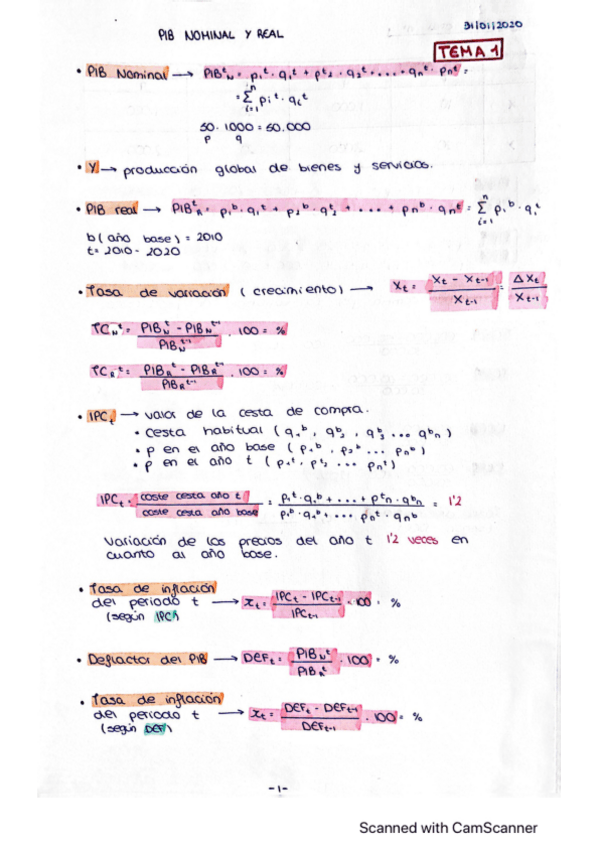 PIB NOMINAL Y REAL
31/01/2020
TEMA 1
• PIB Nominal → PIB^t_N = p₁^t · q₁^t + p^t₂ · q₂^t + .... + qn^t · pn^t =
= Σ^n_{i=1} pi^t · qi^t
50 · 1000 = 50.000
p q
• Y → producción global de bienes y servicios.
• PIB real → PIB^t_R = p₁^b · q₁^t + p₂^b · q^t₂ + ... + pn^b · qn^t = Σ^n_{i=1} pi^b · qi^t
b (año base) = 2010
t = 2010 - 2020
• Tasa de variación (crecimiento) → Xt = (Xt - Xt-1) / Xt-1 = ΔXt / Xt-1
TC_N^t = (PIB_N^t - PIB_N^t-1) / PIB_N^t-1 · 100 = %
TC_R^t = (PIB_R^t - PIB_R^t-1) / PIB_R^t-1 · 100 = %
• IPCt → valor de la cesta de compra.
• cesta habitual (q₁^b, q^b₂, q^b₃ ... q^bn)
• p en el año base (p₁^b, p₂^b ... pn^b)
• p en el año t (p₁^t, p^t₂ ... pn^t)
IPCt = coste cesta año t / coste cesta año base = (p₁^t · q₁^b + ... + p^tn · q^bn) / (p₁^b · q₁^b + ... pn^t · qn^b) = 1'2
Variación de los precios del año t 1'2 veces en
cuanto al año base.
• Tasa de inflación
del periodo t → xt = (IPCt - IPCt-1) / IPCt-1 · 100 = %
(según IPC)
• Deflactor del PIB → DEFt = PIB_N^t / PIB_R^t · 100 = %
• Tasa de inflación
del periodo t → xt = (DEFt - DEFt-1) / DEFt-1 · 100 = %
(según DEF)
-1-
Scanned with CamScanner